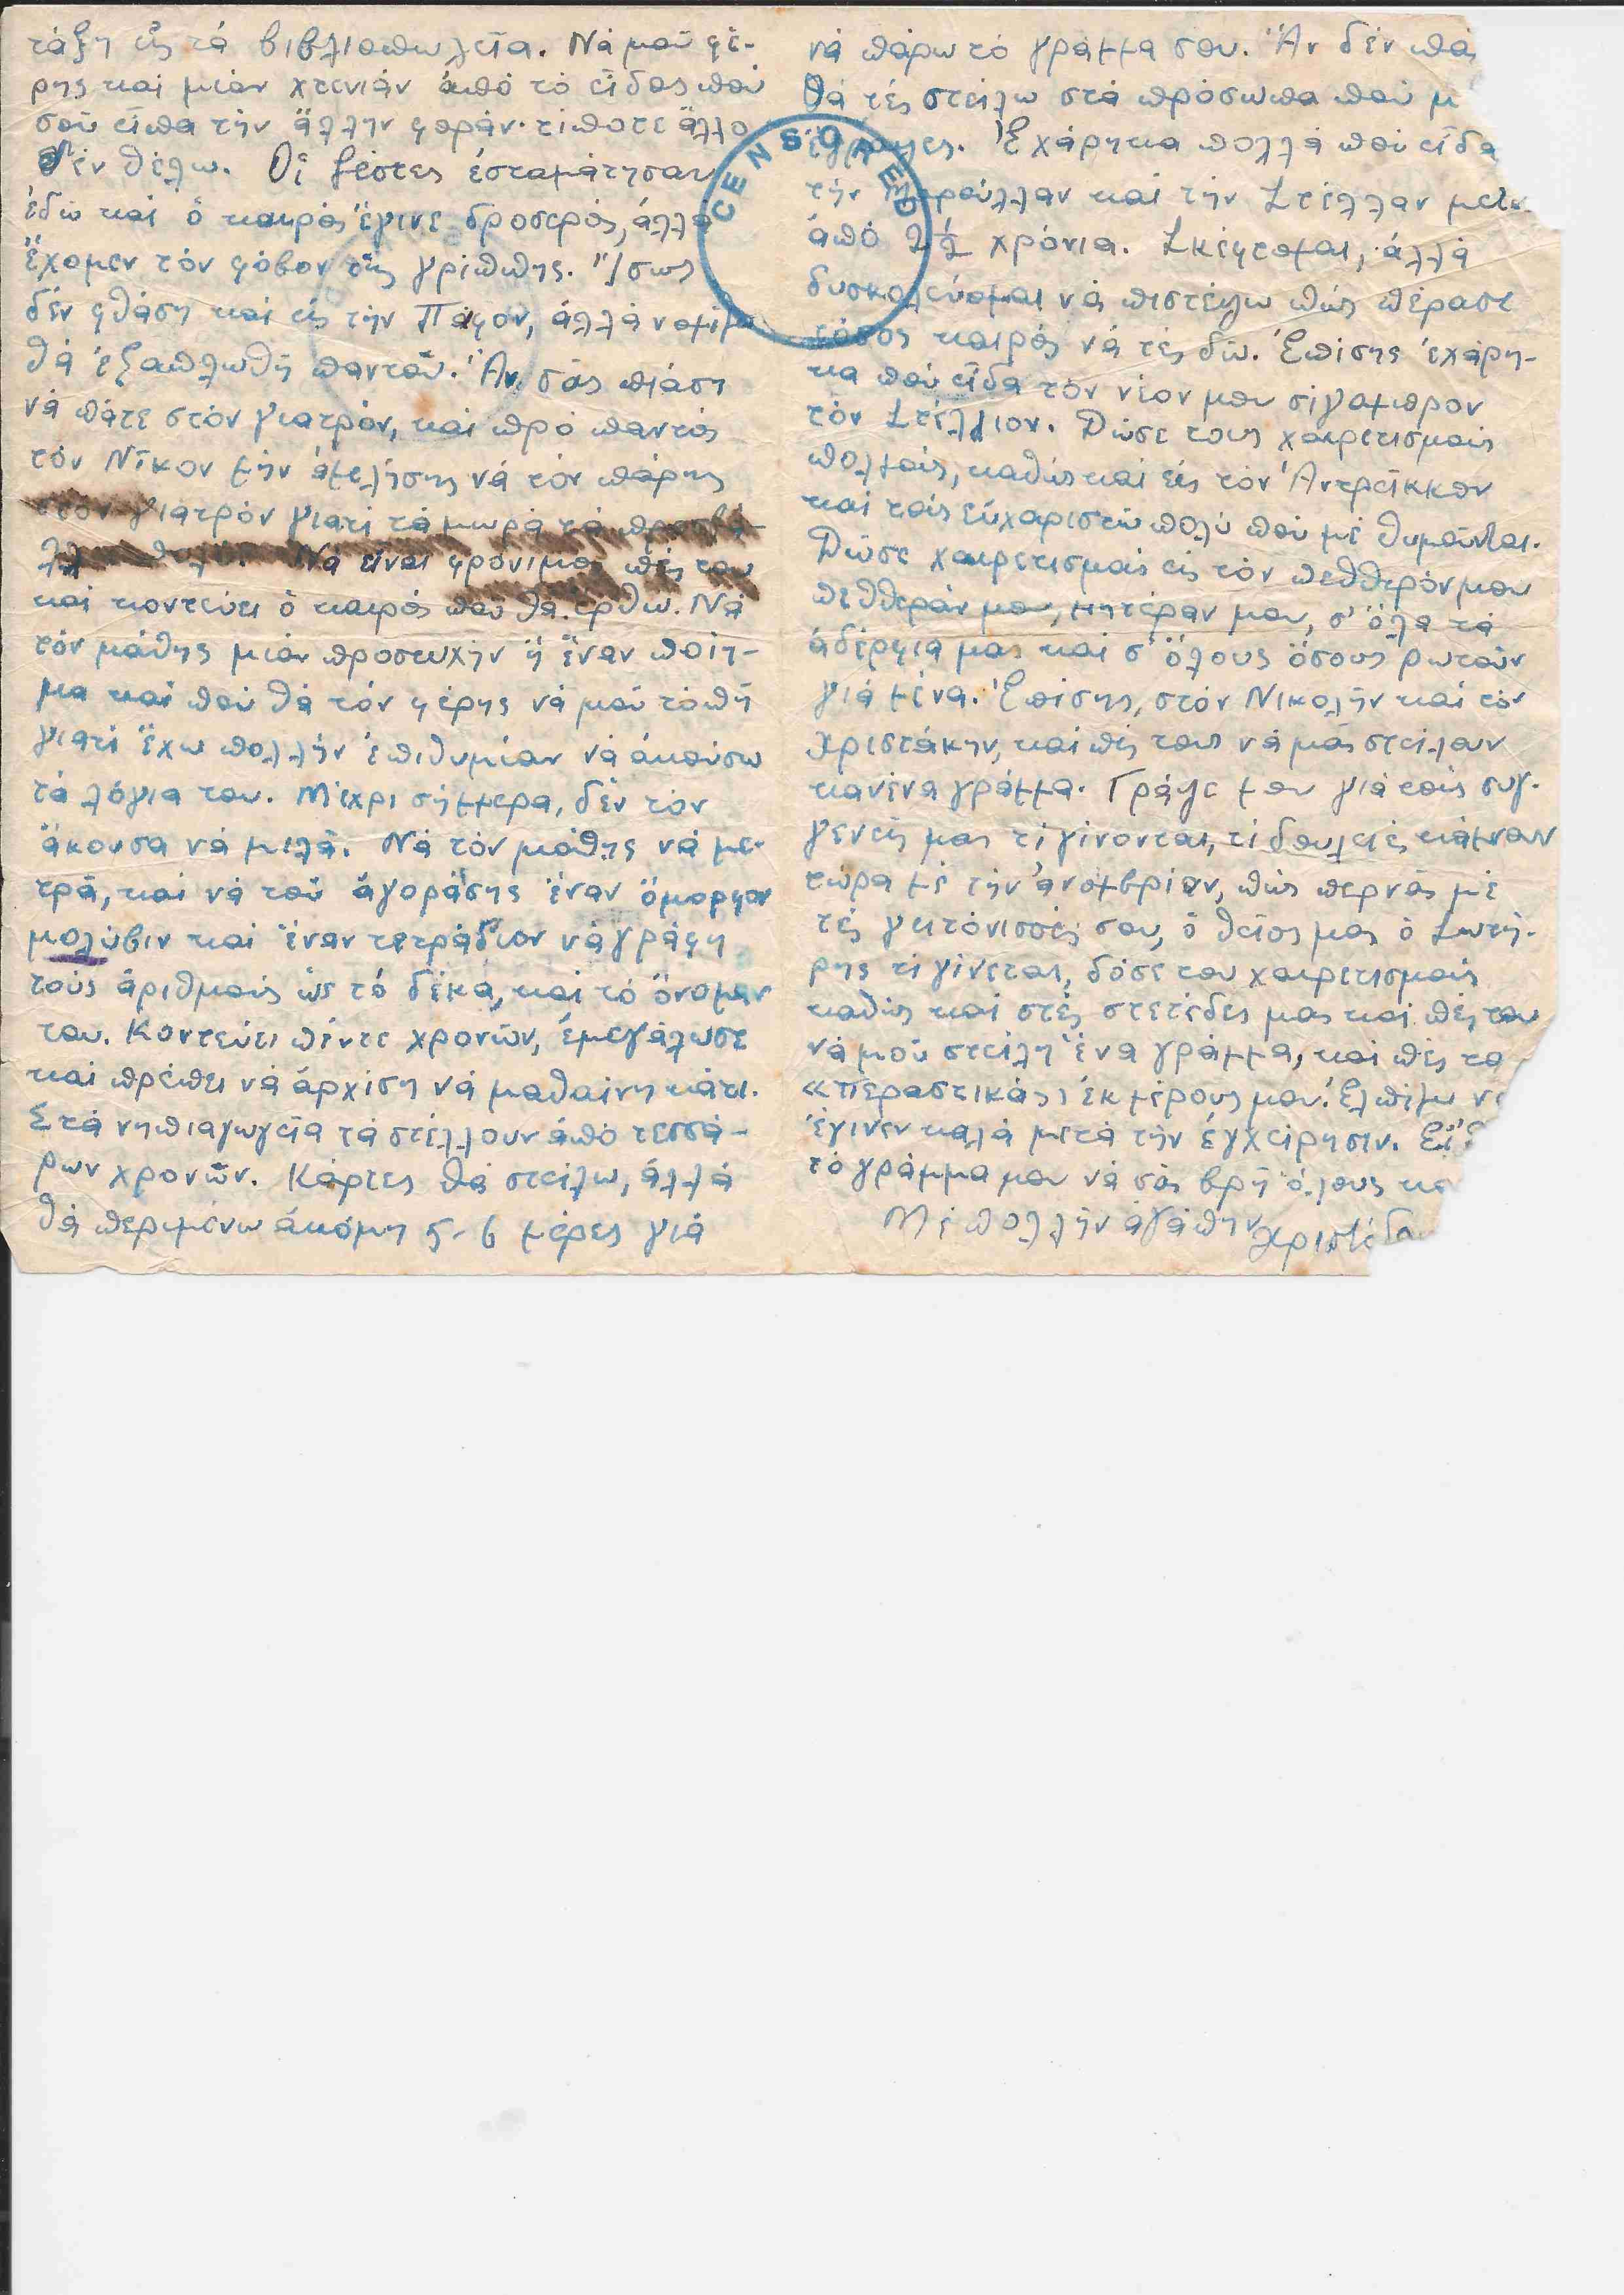 τάξη εἰς τά βιβλιοπωλεῖα. Νά μοῦ φέ-
ρης καί μιάν χτενιάν ἀπό τό εἶδος πού
σοῦ εἶπα τήν ἄλλην φοράν· τίποτε ἄλλο
δέν θέλω. Οἱ ζέστες ἐσταμάτησαν
ἐδῶ καί ὁ καιρός ἔγινε δροσερός, ἀλλά
ἔχομεν τόν φόβον τῆς γρίππης. Ἴσως
δέν φθάση καί εἰς τήν Πάφον, ἀλλά νομίζω
θά ἐξαπλωθῆ παντοῦ. Ἄν σᾶς πιάση
νά πᾶτε στόν γιατρόν, καί πρό παντός
τόν Νῖκον μήν ἀμελήσης νά τόν πάρης
στόν γιατρόν γιατί τά μωρά τά προσβά-
Νά εἶναι φρόνιμος πές του
καί κοντεύει ὁ καιρός πού θά ἔρθω. Νά
τόν μάθης μιάν προσευχήν ἤ ἕναν ποίη-
μα καί πού θά τόν φέρης νά μοῦ τό πῆ
γιατί ἔχω πολλήν ἐπιθυμίαν νά ἀκούσω
τά λόγια του. Μέχρι σήμμερα, δέν τόν
ἄκουσα νά μιλᾶ. Νά τόν μάθης νά με-
τρᾶ, καί νά τοῦ ἀγοράσης ἕναν ὄμορφον
μολύβιν καί ἕναν τετράδιον νά γράφη
τούς ἀριθμούς ὥς τό δέκα, καί τό ὄνομαν
του. Κοντεύει πέντε χρονῶν, ἐμεγάλωσε
καί πρέπει νά ἀρχίση νά μαθαίνη κάτι.
Στά νηπιαγωγεῖα τά στέλλουν ἀπό τεσσά-
ρων χρονῶν. Κάρτες θά στείλω, ἀλλά
θά περιμένω ἀκόμη 5-6 μέρες γιά
νά πάρω τό γράμμα σου. Ἄν δέν
θά τές στείλω στά πρόσωπα πού
ἔγραψες. Ἐχάρηκα πολλά πού εἶδα
τήν καί τήν Στέλλαν
ἀπό 2½ χρόνια. Σκέφτομαι, ἀλλά
δυσκολεύομαι νά πιστέψω πώς πέρασε
τόσος καιρός νά τές δῶ. Ἐπίσης ἐχάρη-
κα πού εἶδα τόν νέον μου σίγαμπρον
τόν Στέλλιον. Δῶσε τους χαιρετισμούς
πολλούς, καθώς καί εἰς τόν Ἀντρεῖκκον
καί τούς εὐχαριστῶ πολύ πού μέ θυμοῦνται.
Δῶσε χαιρετισμούς εἰς τόν πεθθερόν μου
πεθθεράν μου, μητέραν μου, σ' ὅλα τά
ἀδέρφια μας καί σ' ὅλους ὅσους ρωτοῦν
γιά μένα. Ἐπίσης, στόν Νικολῆν καί τόν
Χριστάκην, καί πές τους νά μᾶς στείλουν
κανένα γράμμα. Γράψε μου γιά τούς συγ-
γενεῖς μας τί γίνονται, τί δουλειές κάμνουν
τώρα μέ τήν ἀνομβρίαν, πῶς περνᾶς μέ
τές γειτόνισσές σου, ὁ θεῖος μας ὁ Σωτή-
ρης τί γίνεται, δόσε του χαιρετισμούς
καθώς καί στές στετέδες μας καί πές του
νά μοῦ στείλη ἕνα γράμμα, καί πές το
«περαστικά» ἐκ μέρους μου. Ἐλπίζω
ἔγινεν καλά μετά τήν ἐγχείρησιν.
τό γράμμα μου νά σᾶς βρῆ ὅλους
Μέ πολλήν ἀγάπην
CENSORED